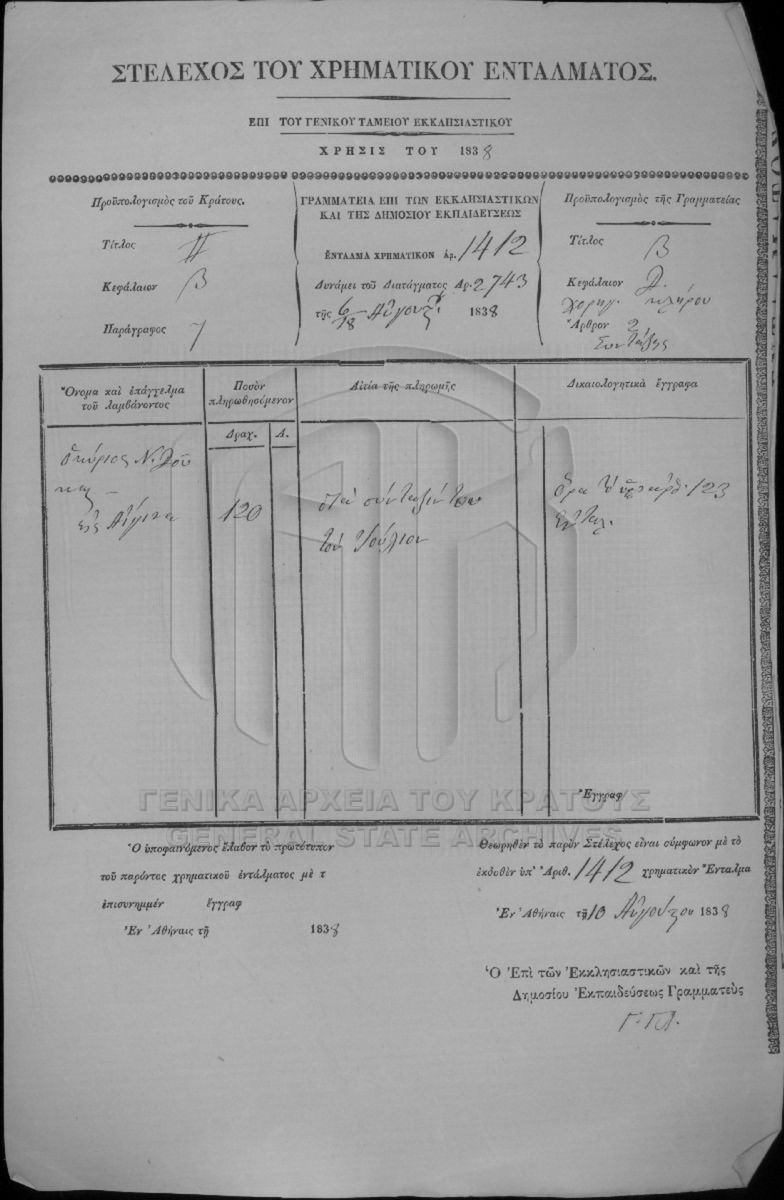 ΣΤΕΛΕΧΟΣ ΤΟΥ ΧΡΗΜΑΤΙΚΟΥ ΕΝΤΑΛΜΑΤΟΣ.
ΕΠΙ ΤΟΥ ΓΕΝΙΚΟΥ ΤΑΜΕΙΟΥ ΕΚΚΛΗΣΙΑΣΤΙΚΟΥ
ΧΡΗΣΙΣ ΤΟΥ 1838
Προϋπολογισμὸς τοῦ Κράτους.
Τίτλος
Κεφάλαιον β
Παράγραφος 7
ΓΡΑΜΜΑΤΕΙΑ ΕΠΙ ΤΩΝ ΕΚΚΛΗΣΙΑΣΤΙΚΩΝ
ΚΑΙ ΤΗΣ ΔΗΜΟΣΙΟΥ ΕΚΠΑΙΔΕΥΣΕΩΣ
ΕΝΤΑΛΜΑ ΧΡΗΜΑΤΙΚΟΝ ἀρ. 1412
Δυνάμει τοῦ Διατάγματος Ἀρ. 2743
τῆς 6/18 Αὐγούστ. 1838
Προϋπολογισμὸς τῆς Γραμματείας
Τίτλος β
Κεφάλαιον
Χορηγ. κλήρου
Ἄρθρον 2
Συντάξεις
Ὄνομα καὶ ἐπάγγελμα
τοῦ λαμβάνοντος
Ποσὸν
πληρωθησόμενον
Δραχ. Λ.
Αἰτία τῆς πληρωμῆς
Δικαιολογητικὰ ἔγγραφα
ὁ κύριος Ν. Δού
κας
εἰς Αἴγινα
120
σύνταξίν του
τοῦ Ἰούλιον
ὅρα τὸ ὑπ' ἀριθ. 123
ἔνταλ.
Ἔγγραφ
ΓΕΝΙΚΑ ΑΡΧΕΙΑ ΤΟΥ ΚΡΑΤΟΥΣ
GENERAL STATE ARCHIVES
Ὁ ὑποφαινόμενος ἔλαβον τὸ πρωτότυπον
τοῦ παρόντος χρηματικοῦ ἐντάλματος μὲ τ
ἐπισυνημμέν ἔγγραφ
Ἐν Ἀθήναις τῇ 1838
Θεωρηθὲν τὸ παρὸν Στέλεχος εἶναι σύμφωνον μὲ τὸ
ἐκδοθὲν ὑπ' Ἀριθ. 1412 χρηματικὸν Ἔνταλμα
Ἐν Ἀθήναις τῇ 10 Αὐγούστου 1838
Ὁ Ἐπὶ τῶν Ἐκκλησιαστικῶν καὶ τῆς
Δημοσίου Ἐκπαιδεύσεως Γραμματεὺς
Γ. Γλ.